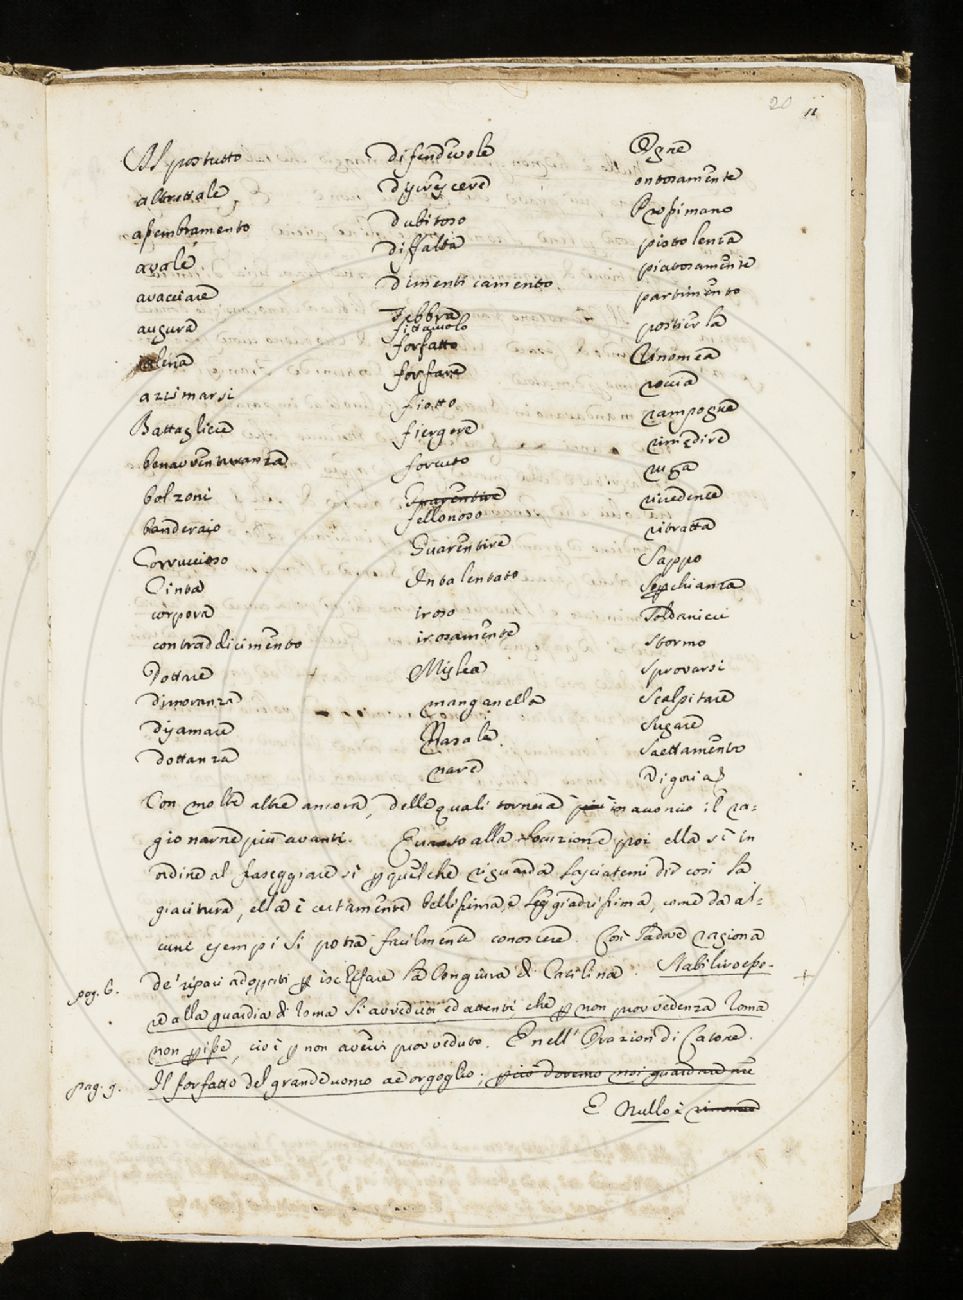 20 11
Al postutto
altrettale,
assembramento
avale
avacciare
augura
alena
azzimarsi
Battagliere
benavventuranza
bolzoni
banderaio
Corruccioso
Cinta
corpora
contraddicimento
Dottare
dimoranza
disamare
dottanza
difendevole
discrescere
dubitoso
diffalta
dimenticamento
Febbra
fittavolo
forfatto
forfare
fiotto
fiergere
forcuto
Guarentire
fellonoso
Guarentire
Intalentato
iroso
irosamente
Mislea
manganella
Nasale.
nare
Ogne
ontosamente
Prossimano
pistolenza
piatosamente
partimento
postierla
Rinomea
roccia
rampogne
rimedire
ruga
ricredente
ritratta
Sappo
Sopchianza
Soldanieri
stormo
Sprovarsi
Scalpitare
sugare
Saettamento
Di goria
Con molte altre ancora, delle quali tornerà più in acconcio il ra-
gionarne più avanti. Quanto alla locuzione poi ella si in
ordine al fraseggiare si p quel che riguarda lasciatemi dir così la
giacitura, ella è certamente bellissima, e leggiadrissima, come da al-
cuni esempi si potrà facilmente conoscere. Così laddove ragiona
pag. 6. de' ripari adoprati p ischifare la Congiura di Catilina: Stabiliro espo-
re alla guardia di Roma si avveduti ed attenti che p non provvedenza Roma
non pisse, cioè p non avervi provveduto. E nell'Orazion di Catone.
pag. 9. Il forfatto del grand'uomo ae orgoglio; p ciò dovemo noi guardare me
E Nullo è rimoneva